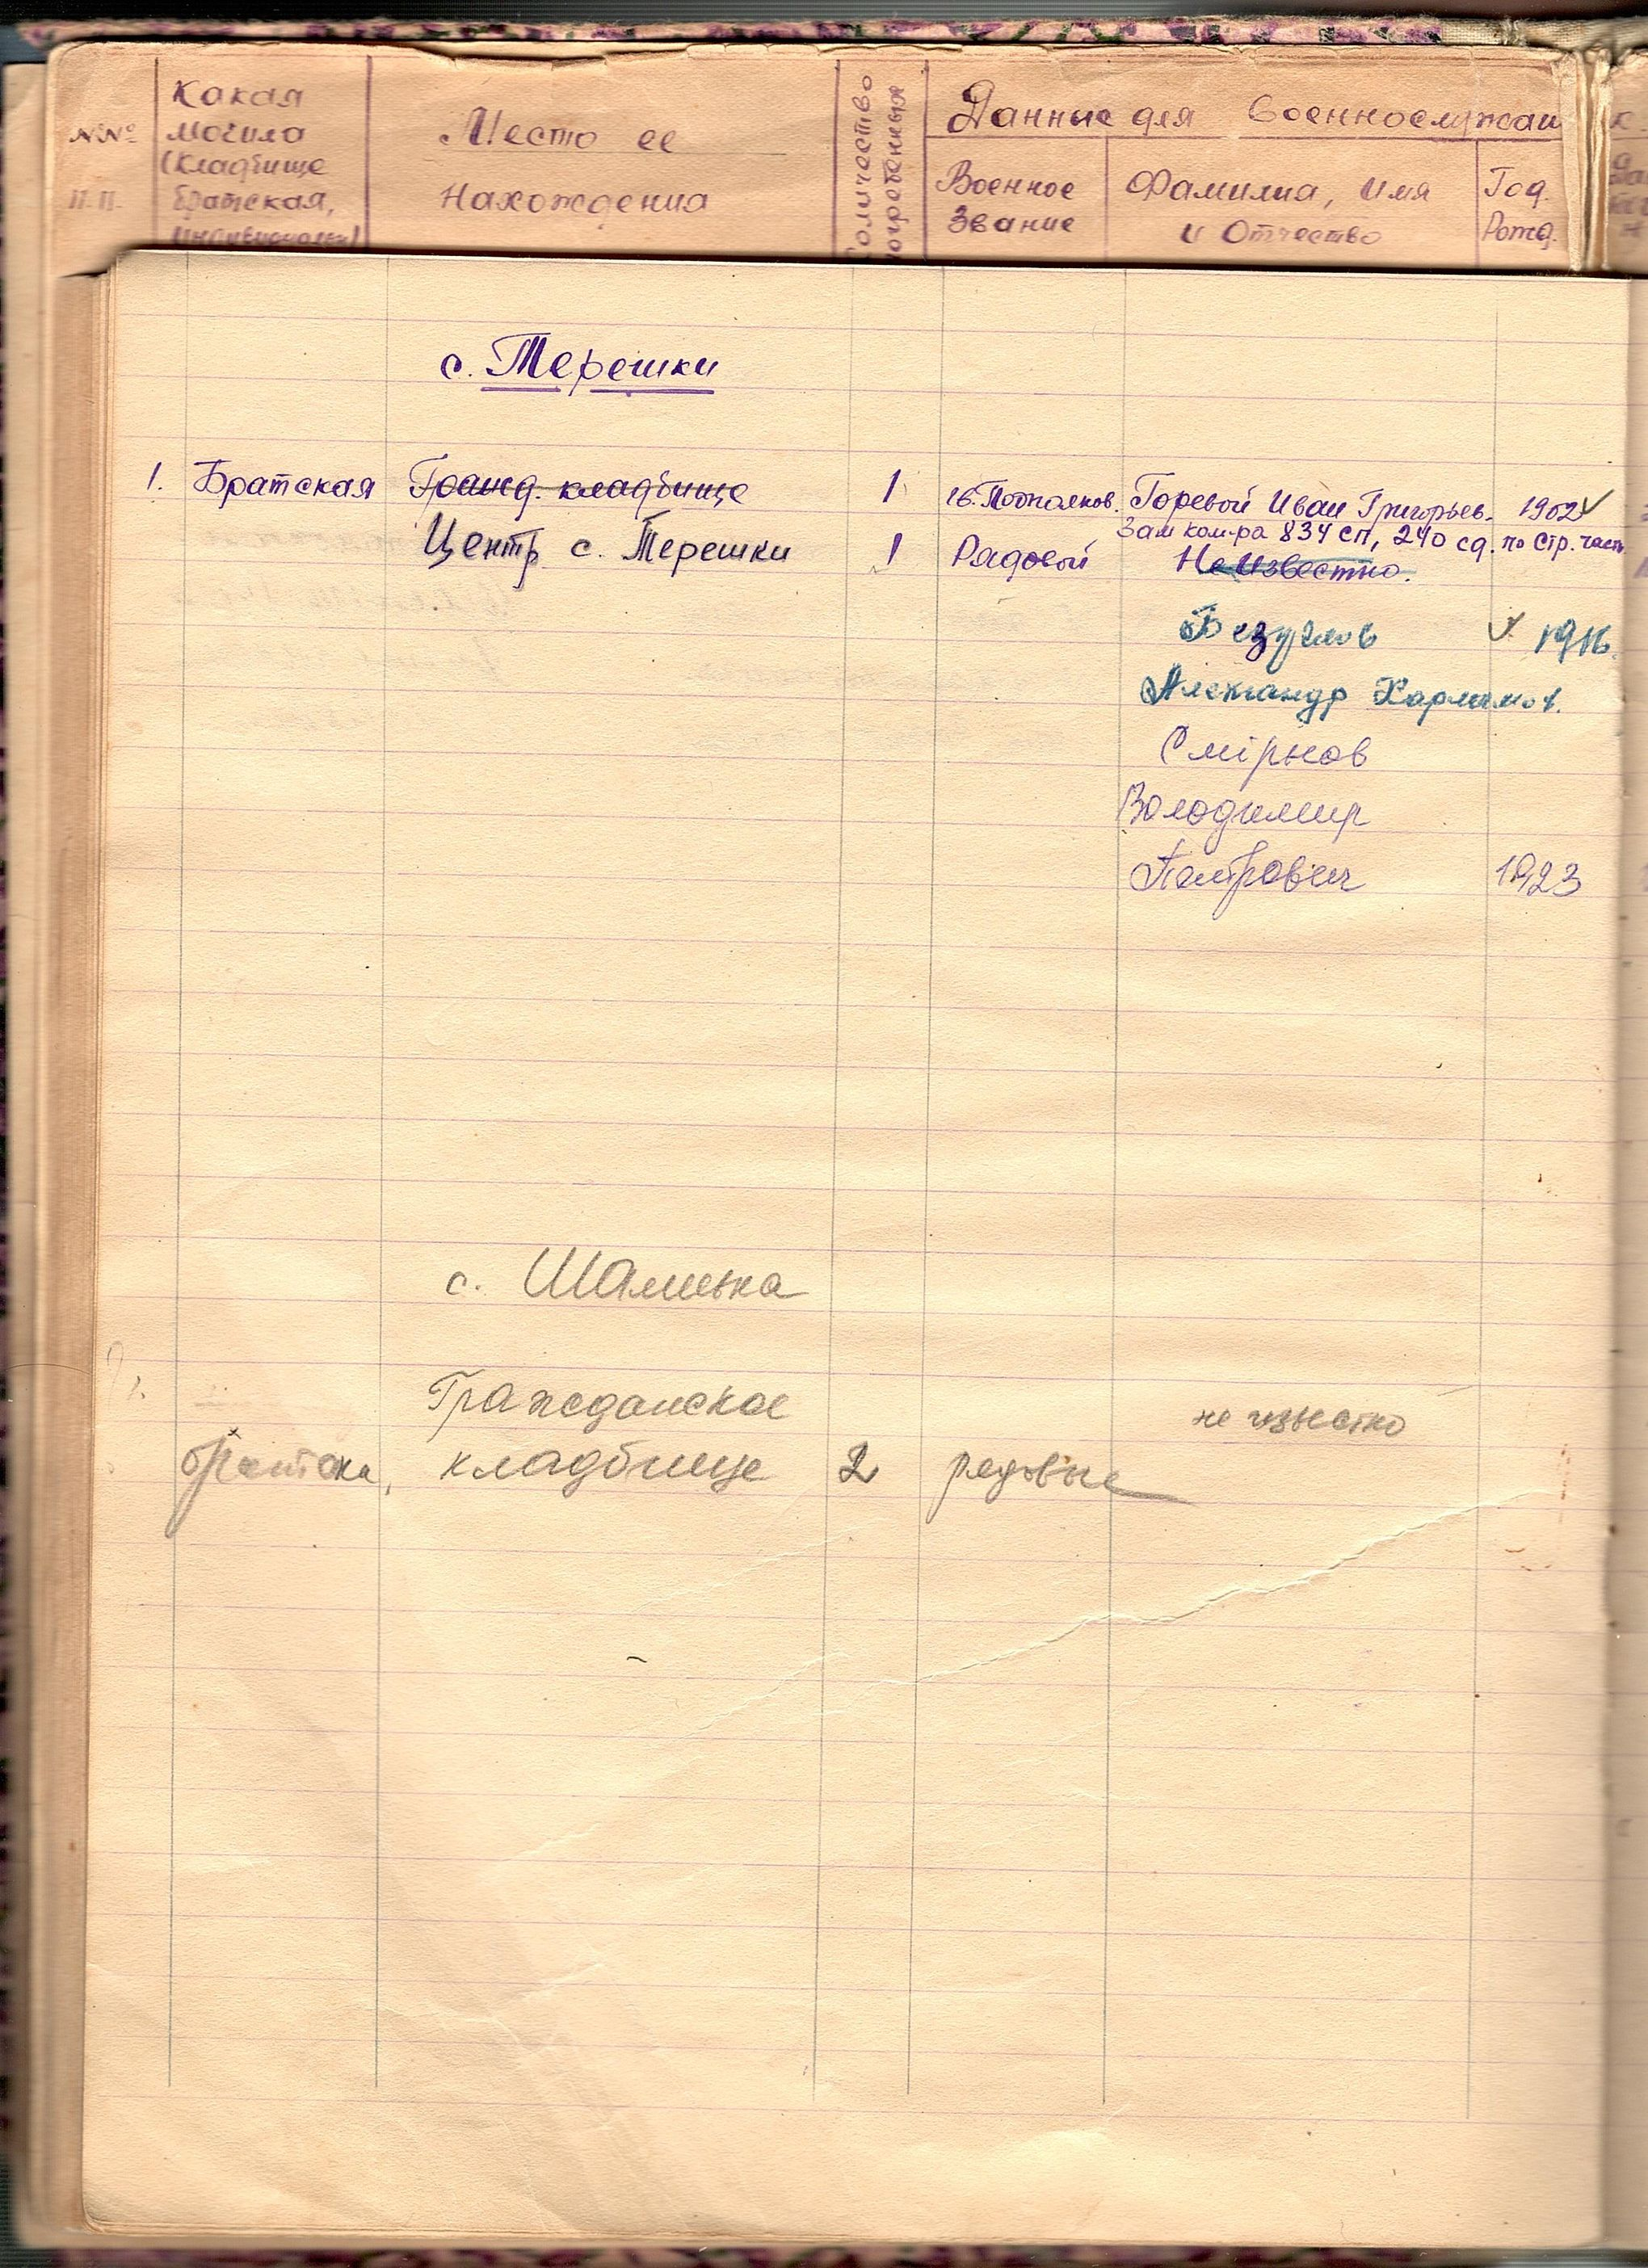 №№ п.п.
Какая могила (кладбище братская, индивидуальн)
Место ее нахождения
Количество погребенных
Данные для военнослужащ
Военное звание
Фамилия, имя и отчество
Год. Рожд.
с. Терешки
1. Братская Гражд. кладбище 1 Подполков. Горевой Иван Григорьев. 1902
Зам ком-ра 834 сп, 240 сд. по стр. части
Центр с. Терешки 1 Рядовой Неизвестно.
Безуглов 1916.
Александр
Смірнов
Володимир
Петрович 1923
с. Шамиевка
Гражданское
не известно
братска, кладбище 2 рядовые